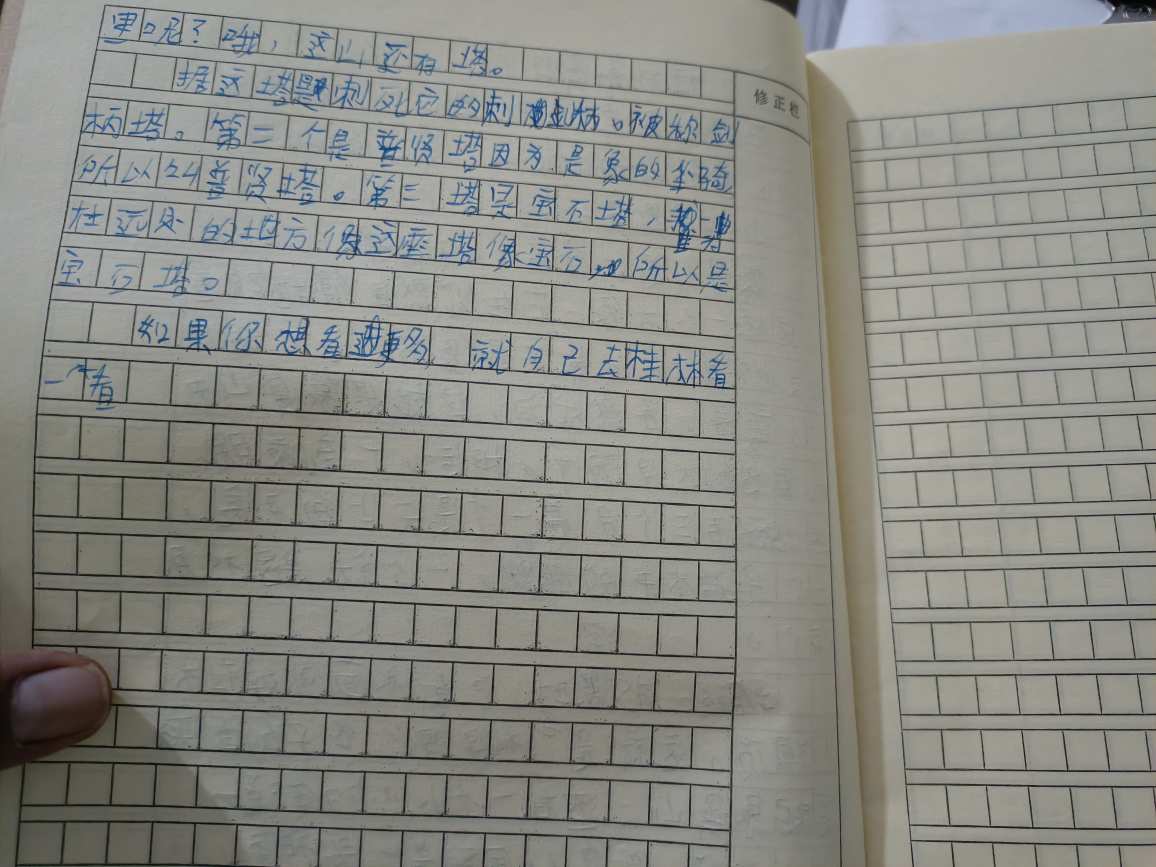 里呢？哦，这山还有塔。
据这塔是刺死它的刺 。被称剑
柄塔。第二个是普贤塔因为是象的坐骑
所以叫普贤塔。第三塔是宝不塔，
在远处的地方像这座塔像宝石 所以是
宝石塔。
如果你想看 更多，就自己去桂林看
一看
修正栏